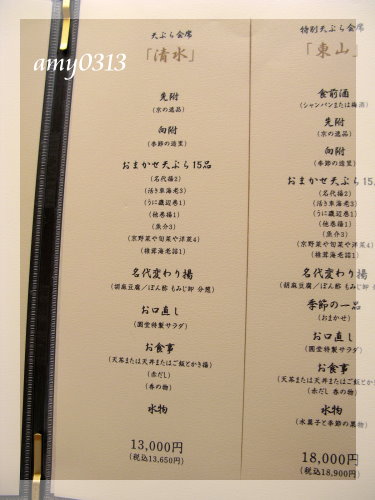 amy0313
天ぷら会席
「清水」
先附
(京の逸品)
向附
(季節の造里)
おまかせ天ぷら15品
(名代揚2)
(活き車海老3)
(うに磯辺巻1)
(他巻揚1)
(魚介3)
(京野菜や旬菜や洋菜4)
(椎茸海老詰1)
名代変わり揚
(胡麻豆腐/ぽん酢 もみじ卸 分葱)
お口直し
(圓堂特製サラダ)
お食事
(天茶または天丼またはご飯とかき揚)
(赤だし)
(香の物)
水物
13,000円
(税込13,650円)
特別天ぷら会席
「東山」
食前酒
(シャンパンまたは梅酒)
先附
(京の逸品)
向附
(季節の造里)
おまかせ天ぷら15
(名代揚2)
(活き車海老3)
(うに磯辺巻1)
(他巻揚1)
(魚介3)
(京野菜や旬菜や洋菜4)
(椎茸海老詰1)
名代変わり揚
(胡麻豆腐/ぽん酢 もみじ卸 分葱)
季節の一品
(おまかせ)
お口直し
(圓堂特製サラダ)
お食事
(天茶または天丼またはご飯とか
(赤だし 香の物)
水物
(水菓子と季節の果物)
18,000円
(税込18,900円)